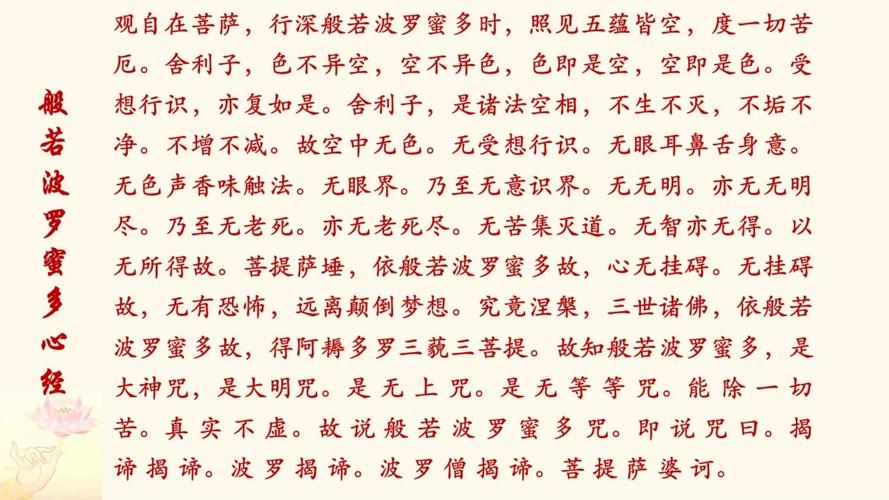 般若波罗蜜多心经
观自在菩萨，行深般若波罗蜜多时，照见五蕴皆空，度一切苦
厄。舍利子，色不异空，空不异色，色即是空，空即是色。受
想行识，亦复如是。舍利子，是诸法空相，不生不灭，不垢不
净。不增不减。故空中无色。无受想行识。无眼耳鼻舌身意。
无色声香味触法。无眼界。乃至无意识界。无无明。亦无无明
尽。乃至无老死。亦无老死尽。无苦集灭道。无智亦无得。以
无所得故。菩提萨埵，依般若波罗蜜多故，心无挂碍。无挂碍
故，无有恐怖，远离颠倒梦想。究竟涅槃，三世诸佛，依般若
波罗蜜多故，得阿耨多罗三藐三菩提。故知般若波罗蜜多，是
大神咒，是大明咒。是无上咒。是无等等咒。能除一切
苦。真实不虚。故说般若波罗蜜多咒。即说咒曰。揭
谛揭谛。波罗揭谛。波罗僧揭谛。菩提萨婆诃。